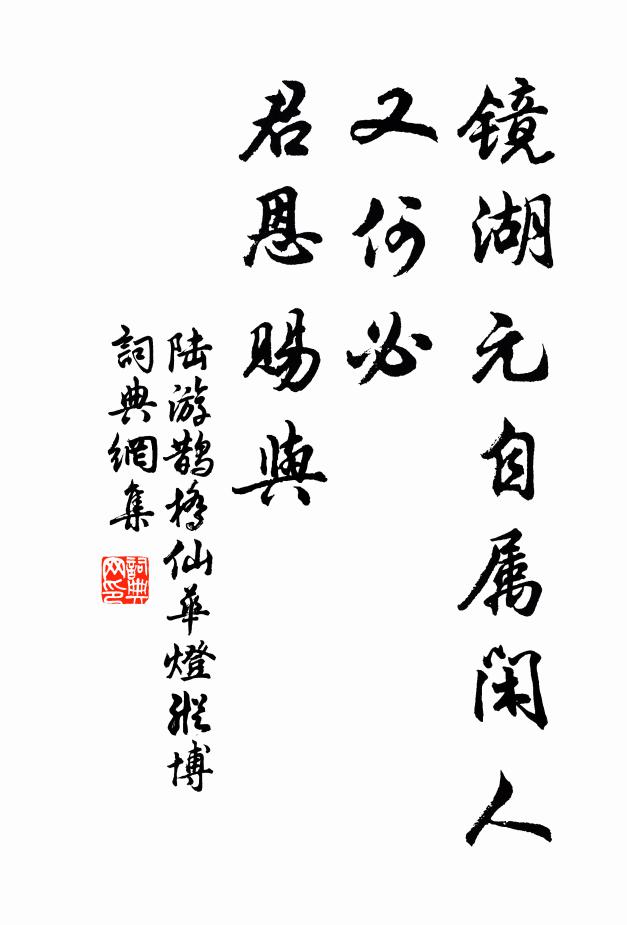 镜湖元自属闲人
又何必
君恩赐与
陆游鹊桥仙华灯纵博
词典网集
词典网印